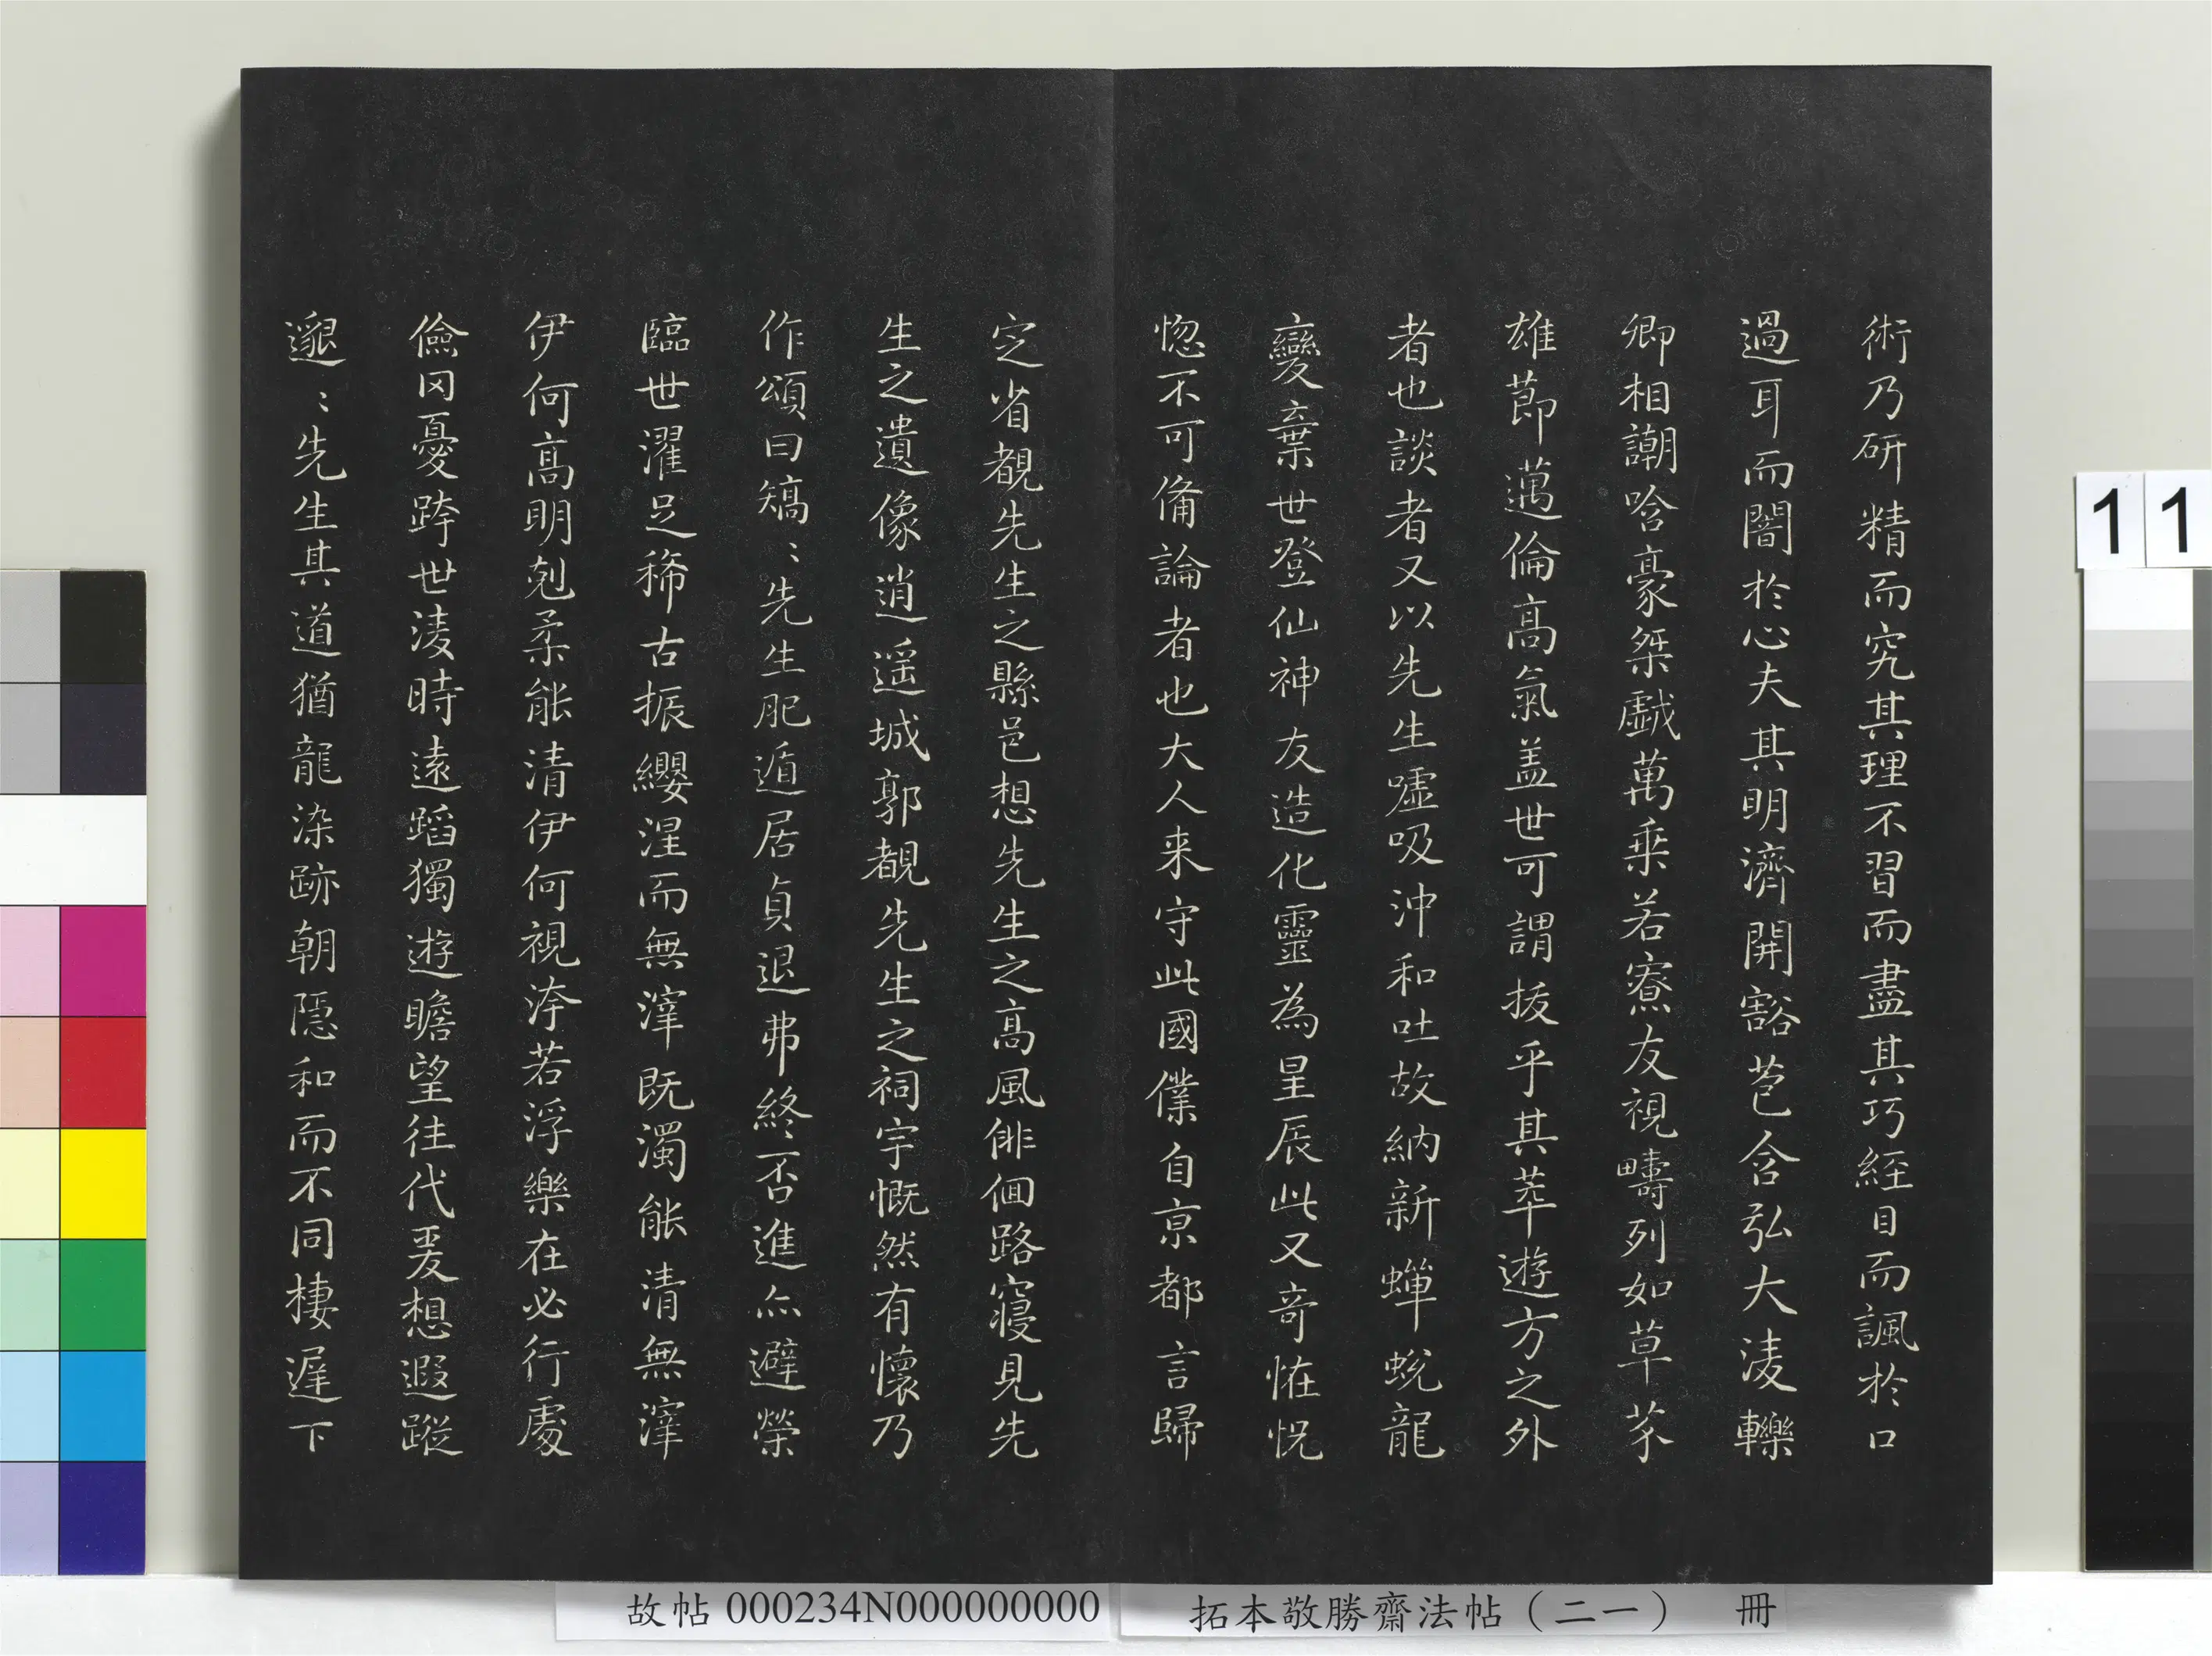 術乃研精而究其理不習而盡其巧経目而諷於口
過耳而闇於心夫其明濟開豁苞含弘大淩轢
卿相謿哈豪桀戱萬乘若寮友視疇列如草芥
雄節邁倫高氣盖世可謂拔乎其萃遊方之外
者也談者又以先生噓吸沖和吐故納新蟬蛻龍
變棄世登仙神友造化靈為星辰此又奇恠恍
惚不可備論者也大人来守此國僕自京都言歸
定省覩先生之縣邑想先生之高風俳佪路寢見先
生之遺像逍遥城郭覩先生之祠宇慨然有懷乃
作頌曰矯﹕先生肥遁居貞退弗終否進亦避榮
臨世濯足稀古振纓涅而無滓既濁能清無滓
伊何高明剋柔能清伊何視洿若浮樂在必行處
儉罔憂跨世淩時遠蹈獨遊瞻望往代爰想遐蹤
邈﹕先生其道猶龍染跡朝隱和而不同棲遲下
11
故帖 000234N000000000
拓本敬勝齋法帖（二一） 冊